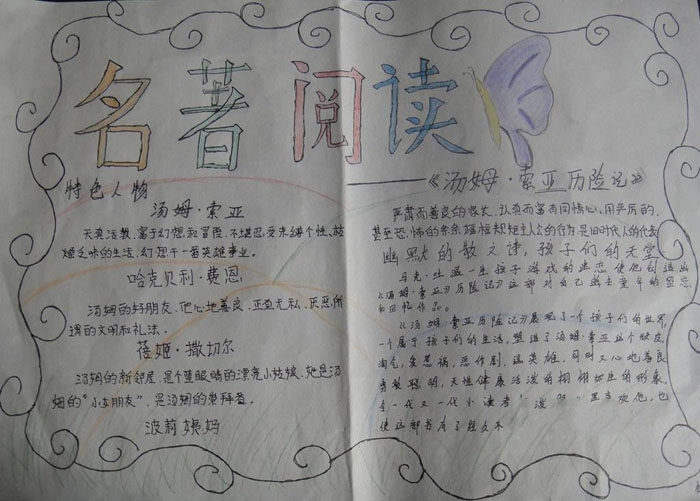 名著阅读
——《汤姆·索亚历险记》
特色人物
汤姆·索亚
天真活泼,富于幻想和冒险,不堪忍受束缚个性,枯
燥乏味的生活,幻想干一番英雄事业。
哈克贝利·费恩
汤姆的好朋友,他心地善良,正直无私,厌恶所
谓的文明和礼法。
蓓姬·撒切尔
汤姆的新邻居,是个蓝眼睛的漂亮小姑娘,她是汤
姆的“小女朋友”,是汤姆的崇拜者。
波莉姨妈
严肃而善良的家长,认真而富有同情心,用严厉的,
甚至恐怖的条条框框规矩主人公的行为,是旧时代人的代表
幽默的散文诗,孩子们的天堂
马克·吐温一生孩子游戏的迷恋使他创造出
《汤姆·索亚历险记》这部对自己逝去童年的留恋
和回忆作品。
《汤姆·索亚历险记》展现了一个孩子们的世界,
一个属于孩子们的生活,塑造了汤姆·索亚这个顽皮
淘气,爱惹祸,恶作剧,逞英雄,同时又心地善良
勇敢聪明,天性健康活泼的栩栩如生的形象,
令一代又一代小读者 喜欢他,也
使这部书有了经久不